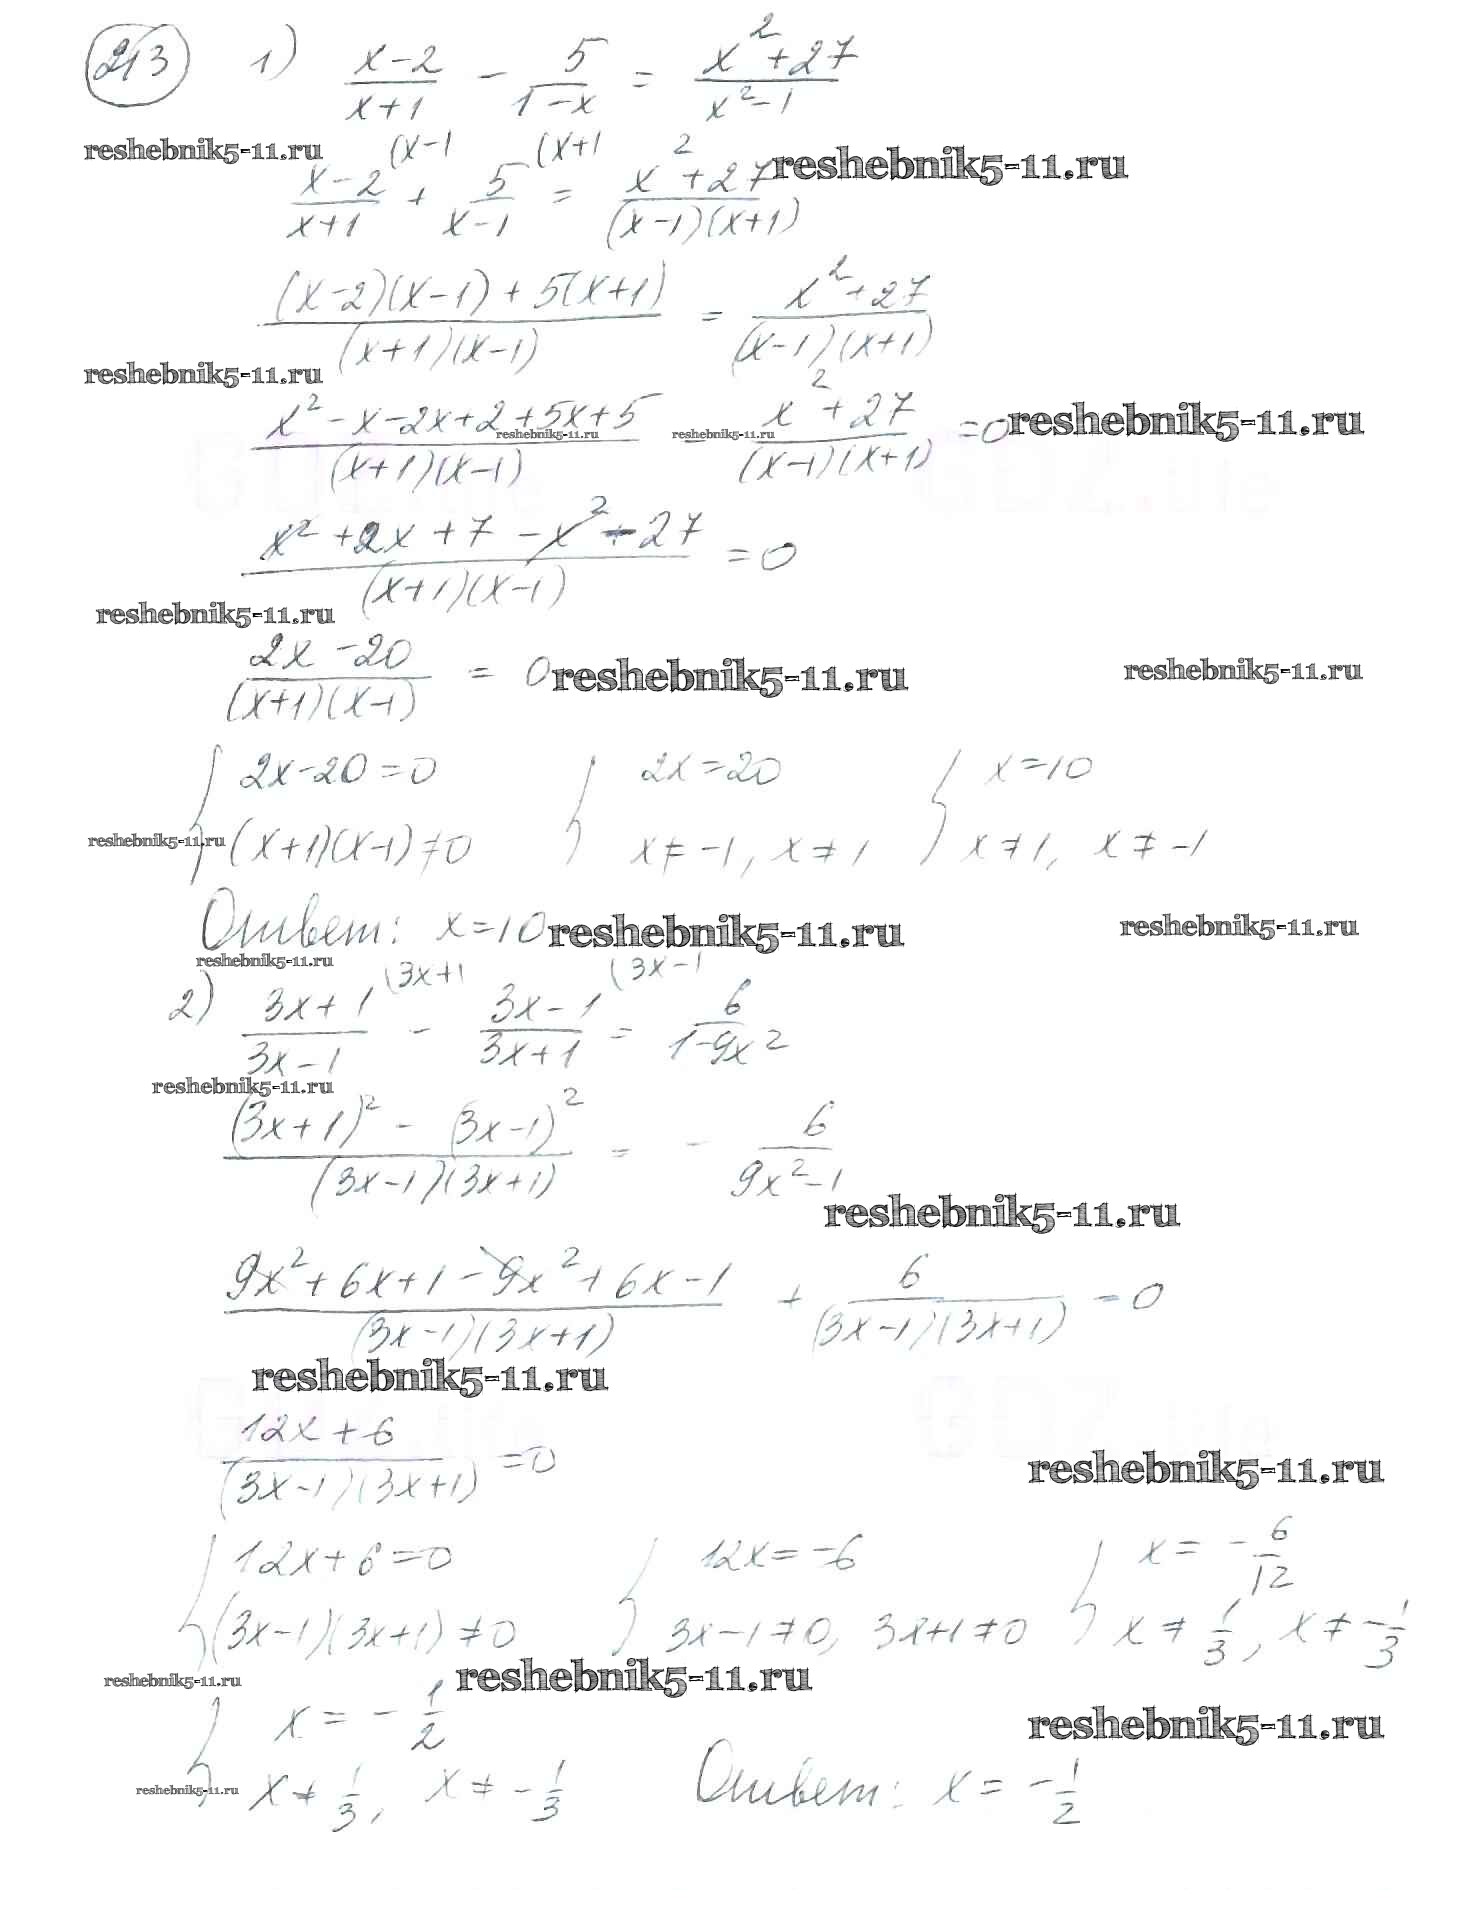 213 1) (x-2)/(x+1) - 5/(1-x) = (x²+27)/(x²-1)
reshebnik5-11.ru (x-1 (x+1 reshebnik5-11.ru
(x-2)/(x+1) + 5/(x-1) = (x²+27)/((x-1)(x+1))
((x-2)(x-1)+5(x+1))/((x+1)(x-1)) = (x²+27)/((x-1)(x+1))
reshebnik5-11.ru
(x²-x-2x+2+5x+5)/((x+1)(x-1)) - (x²+27)/((x-1)(x+1)) =0 reshebnik5-11.ru
reshebnik5-11.ru reshebnik5-11.ru
(x²+2x+7-x²-27)/((x+1)(x-1)) =0
reshebnik5-11.ru
(2x-20)/((x+1)(x-1)) = 0 reshebnik5-11.ru reshebnik5-11.ru
{ 2x-20=0 { 2x=20 { x=10
reshebnik5-11.ru (x+1)(x-1)≠0 x≠-1, x≠1 x≠1, x≠-1
Ответ: x=10 reshebnik5-11.ru reshebnik5-11.ru
reshebnik5-11.ru (3x+1 (3x-1
2) (3x+1)/(3x-1) - (3x-1)/(3x+1) = 6/(1-9x²)
reshebnik5-11.ru
((3x+1)²-(3x-1)²)/((3x-1)(3x+1)) = - 6/(9x²-1)
reshebnik5-11.ru
(9x²+6x+1-9x²+6x-1)/((3x-1)(3x+1)) + 6/((3x-1)(3x+1)) =0
reshebnik5-11.ru
(12x+6)/((3x-1)(3x+1)) =0 reshebnik5-11.ru
{ 12x+6=0 { 12x=-6 { x= -6/12
(3x-1)(3x+1)≠0 3x-1≠0, 3x+1≠0 x≠1/3, x≠-1/3
reshebnik5-11.ru reshebnik5-11.ru
{ x=-1/2 reshebnik5-11.ru
reshebnik5-11.ru x≠1/3, x≠-1/3 Ответ: x=-1/2